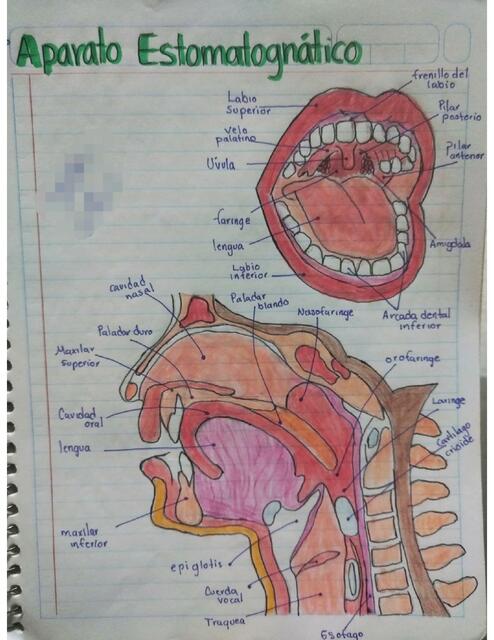 Aparato Estomatognático
frenillo del
labio
Labio
Superior
Pilar
posterio
Velo
palatino
Pilar
anterior
Úvula
faringe
lengua
Amigdala
Labio
inferior
Arcada dental
inferior
cavidad
nasal
Paladar
blando
Nasofaringe
Paladar duro
Maxilar
superior
orofaringe
Cavidad
oral
Laringe
lengua
Cartilago
cricoide
maxilar
inferior
epiglotis
Cuerda
vocal
Traquea
Esofago